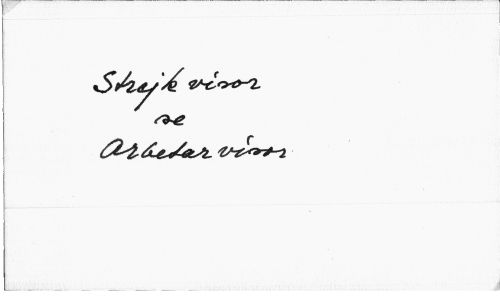 Strejkvisor
se
Arbetarvisor